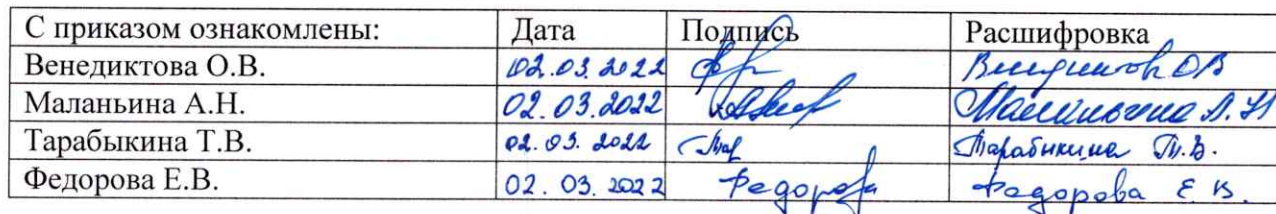 С приказом ознакомлены: Дата Подпись Расшифровка
Венедиктова О.В. 02.03.2022 ОВ
Маланьина А.Н. 02.03.2022 Маланьина А.Н
Тарабыкина Т.В. 02.03.2022 Тар Тарабыкина Т.В.
Федорова Е.В. 02.03.2022 Федорова Федорова Е В.